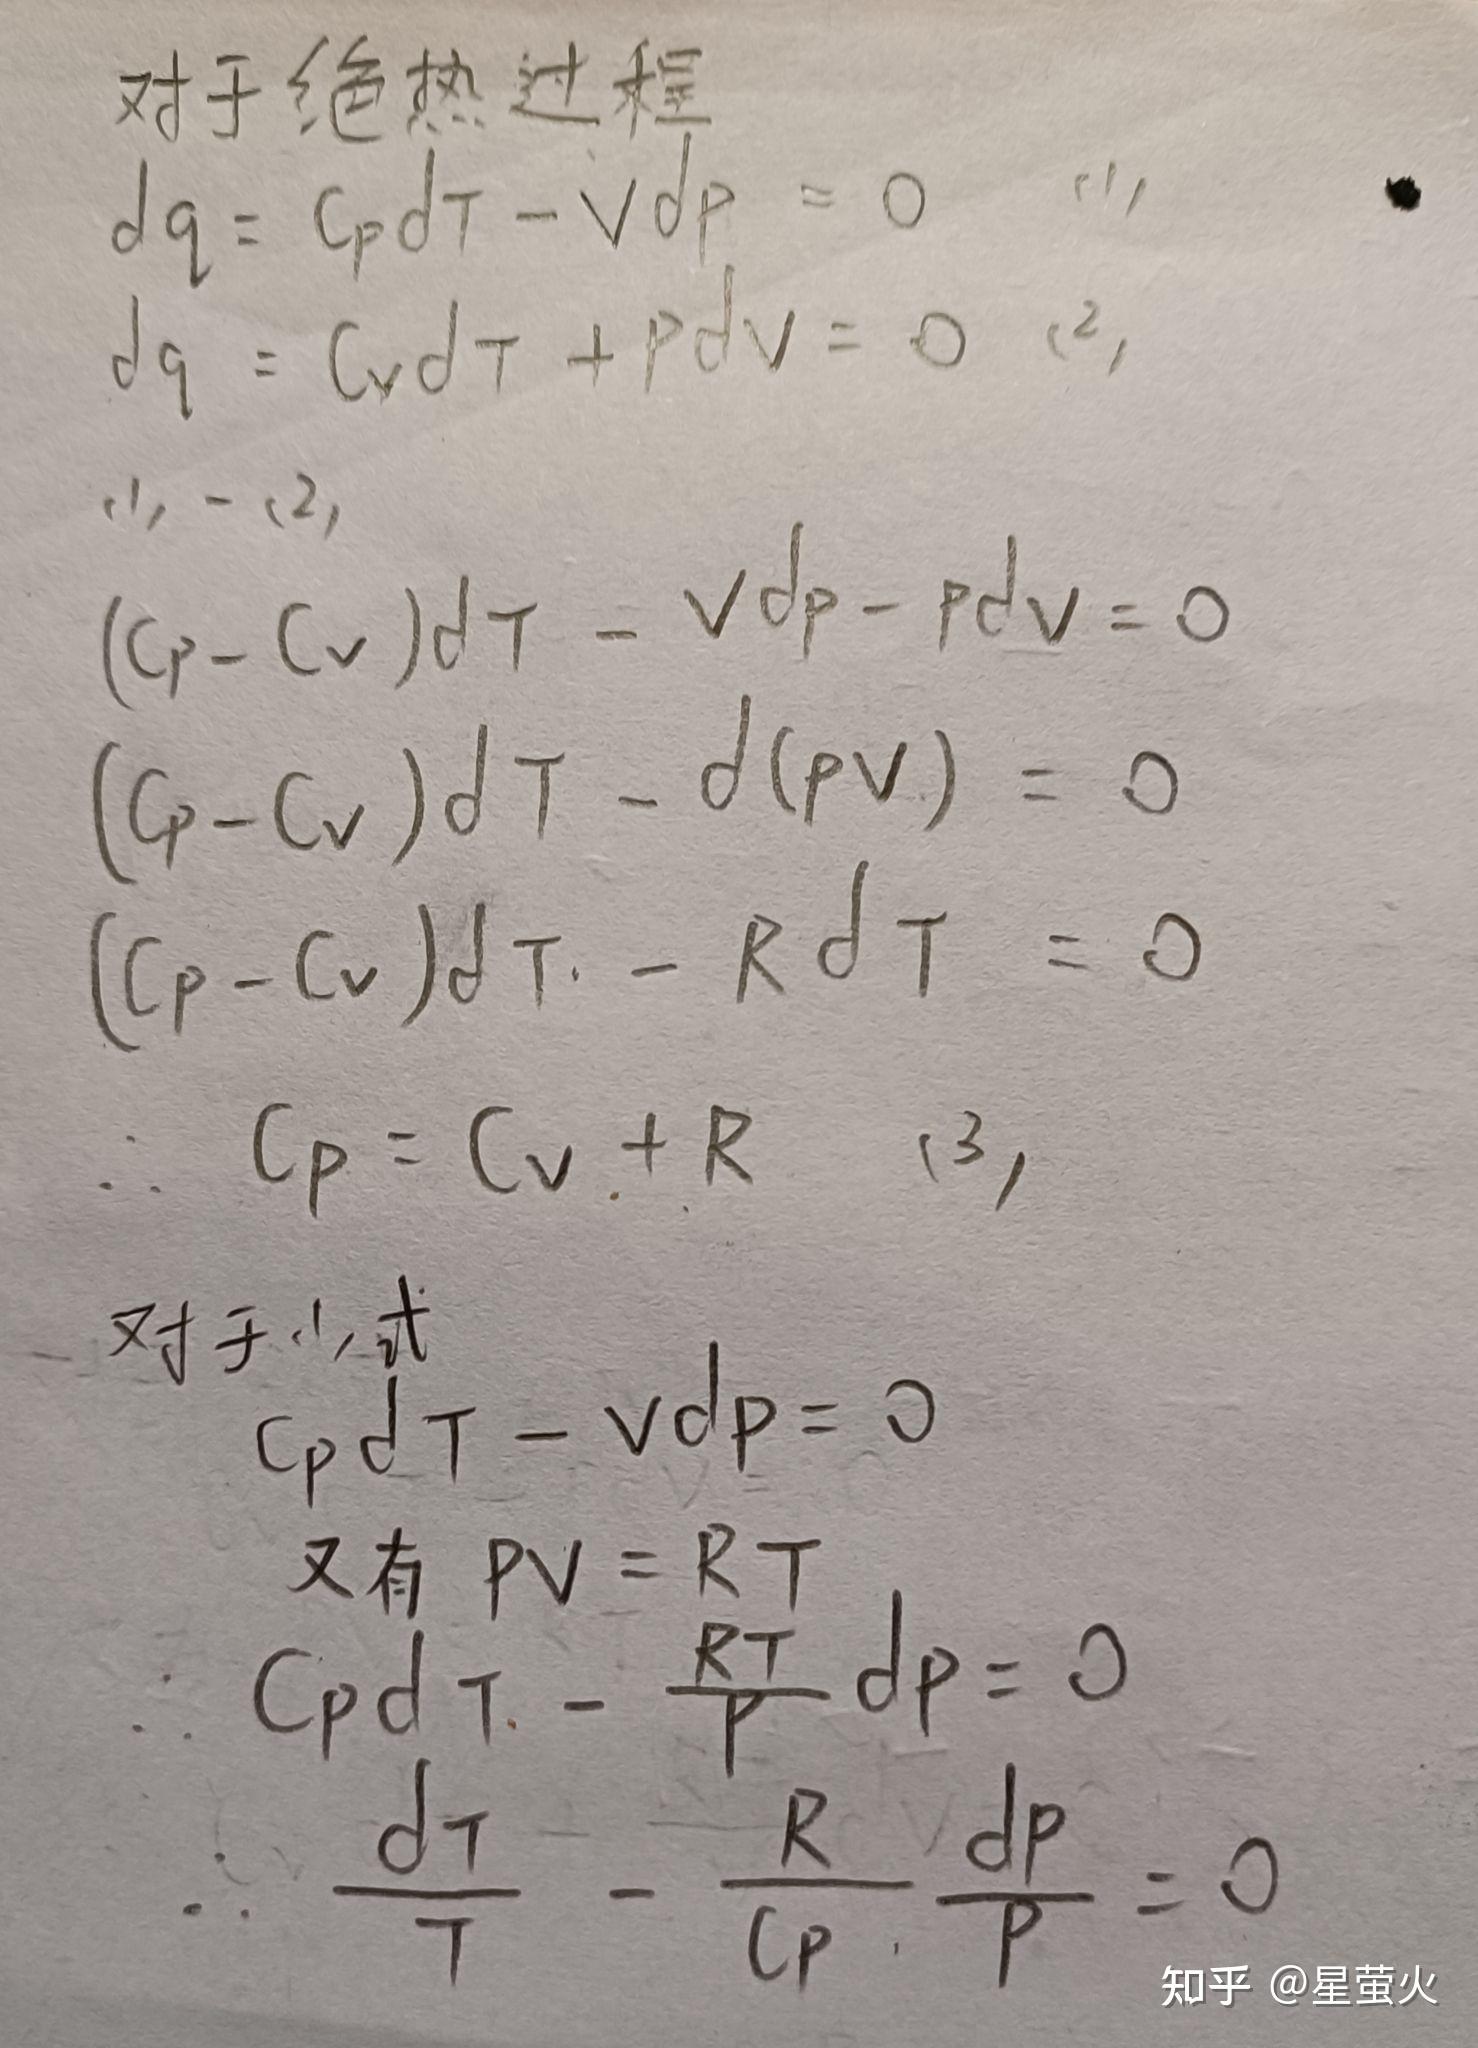 对于绝热过程
dq = CpdT - Vdp = 0 (1)
dq = CvdT + pdV = 0 (2)
(1) - (2)
(Cp - Cv)dT - Vdp - pdV = 0
(Cp - Cv)dT - d(pV) = 0
(Cp - Cv)dT - RdT = 0
∴ Cp = Cv + R (3)
对于(1)式
CpdT - Vdp = 0
又有 PV = RT
∴ CpdT - RT/P dp = 0
∴ dT/T - R/Cp dP/P = 0
知乎 @星萤火